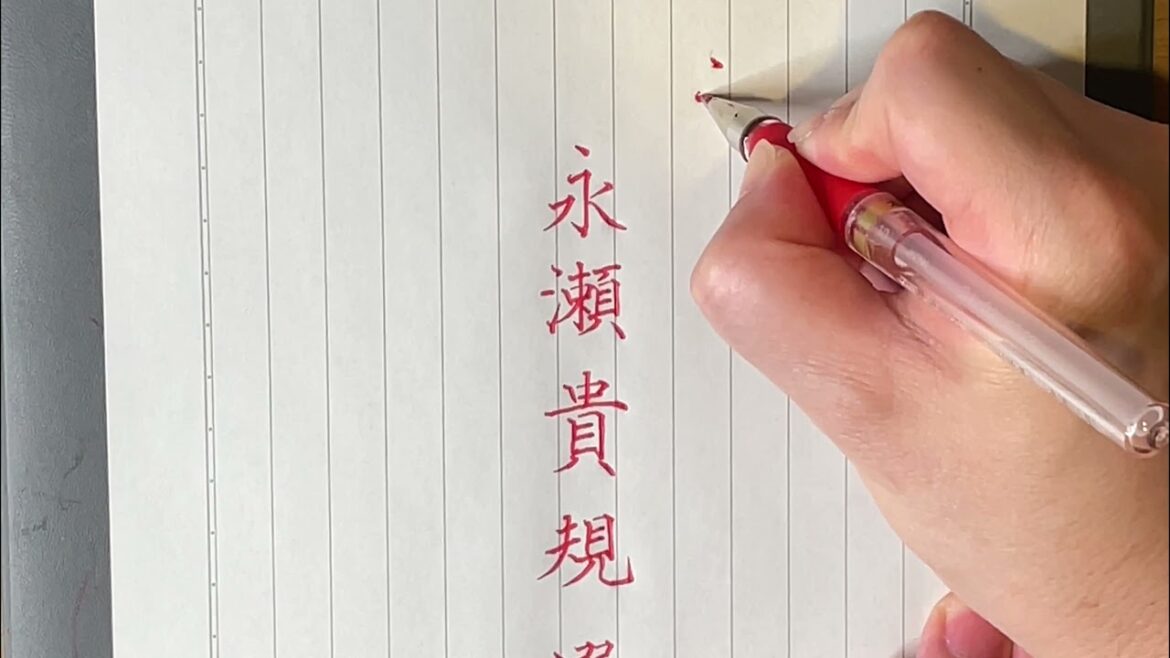 永瀬貴規